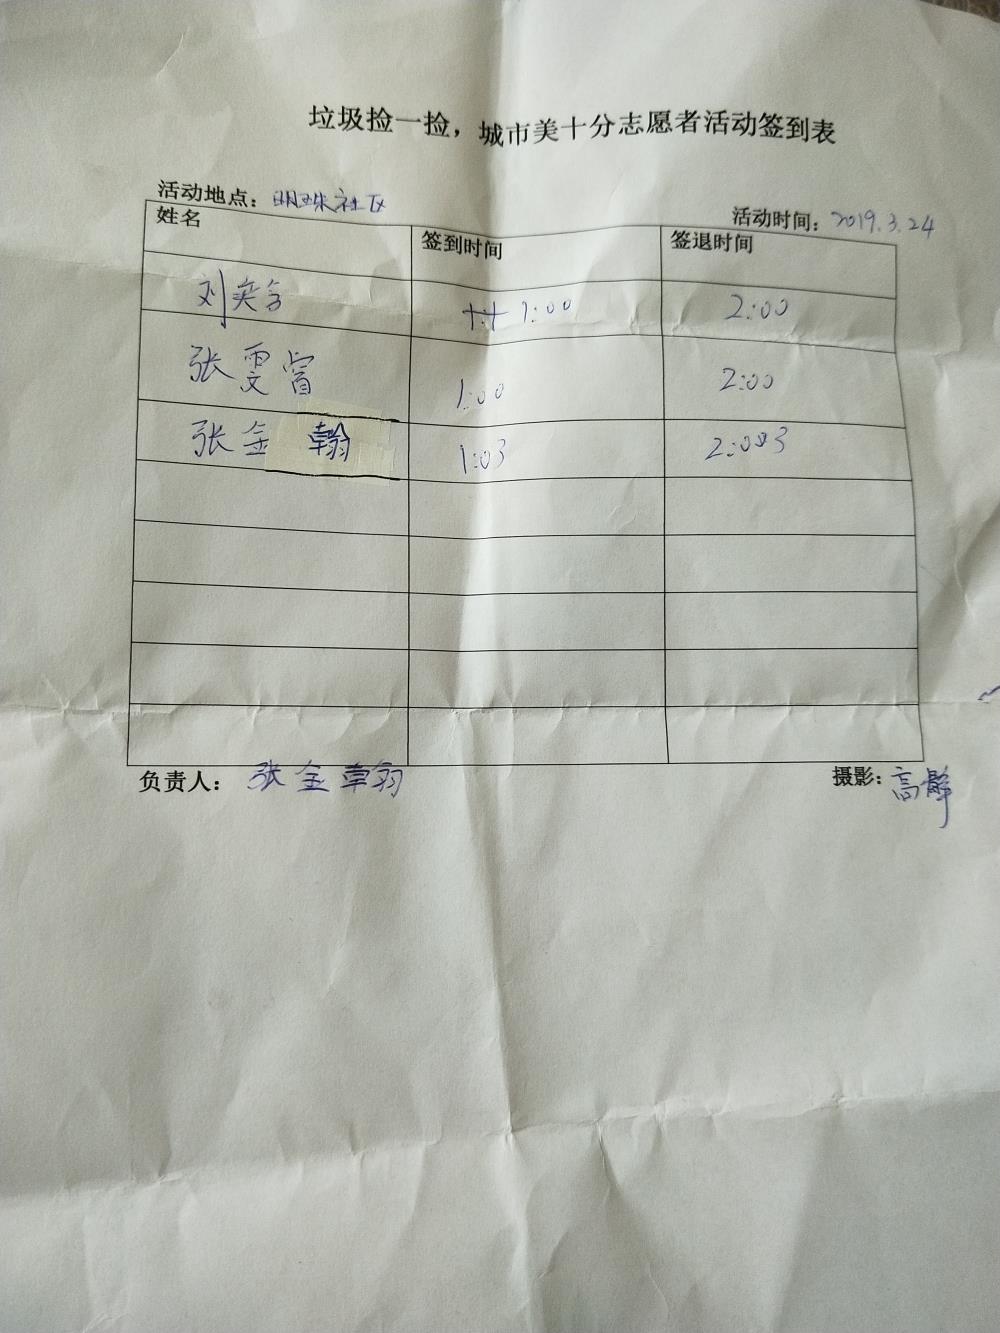 垃圾捡一捡，城市美十分志愿者活动签到表
活动地点：明珠社区
活动时间：2019.3.24
姓名 签到时间 签退时间
刘奕含 1:00 2:00
张雯睿 1:00 2:00
张金翰 1:03 2:03
负责人：张金翰
摄影：高静